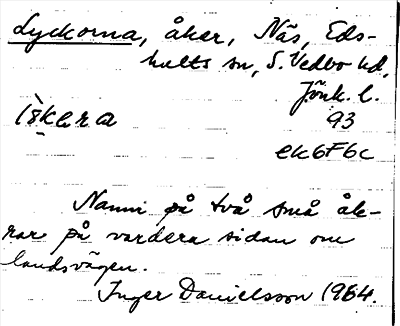 Lyckorna, åker, Näs, Eds-
hults sn, S. Vedbo hd,
Jönk. l.
93
ek6F6c
Namn på två små åk-
rar på vardera sidan om
landsvägen.
Inger Danielsson 1964.